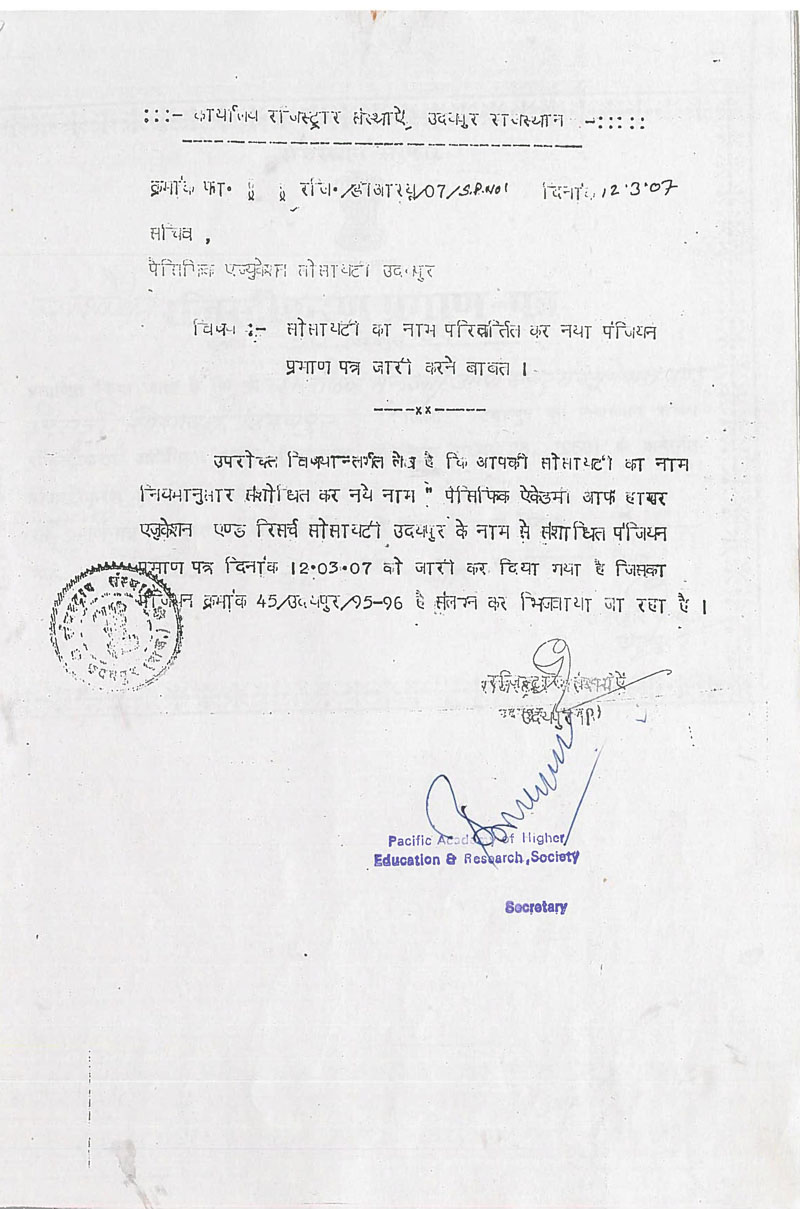 :::- कार्यालय रजिस्ट्रार संस्थाऐं, उदयपुर राजस्थान -:::::
क्रमांक फा. रजि./डीआरयू/07/S.P.NO1 दिनांक 12.3.07
सचिव,
पैसिफिक एज्युकेशन सोसायटी उदयपुर
विषय :- सोसायटी का नाम परिवर्त्तित कर नया पंजियन
प्रमाण पत्र जारी करने बाबत ।
----xx-----
उपरोक्त विषयान्तर्गत लेख है कि आपकी सोसायटी का नाम
नियमानुसार संशोधित कर नये नाम " पैसिफिक ऐकेडमी आफ हायर
एजुकेशन एण्ड रिसर्च सोसायटी उदयपुर के नाम से संशोधित पंजियन
प्रमाण पत्र दिनांक 12.03.07 को जारी कर दिया गया है जिसका
क्रमांक 45/उदयपुर/95-96 है संलग्न कर भिजवाया जा रहा है ।
रजिस्ट्रार संस्थाऐं
उदयपुर
Pacific Academy of Higher
Education & Research Society
Secretary